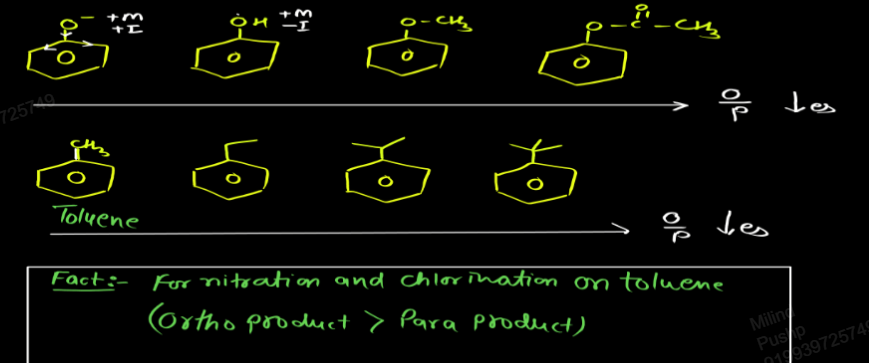 O⁻ +M
+I
ÖH +M
-I
O-CH₃
O-C-CH₃
O
O
O
O
O
O/P ↓es
CH₃
O
O
O
O
Toluene
O/P ↓es
Fact:- For nitration and chlorination on toluene
(Ortho product > Para product)
725749
Milind
Pushp
919939725749